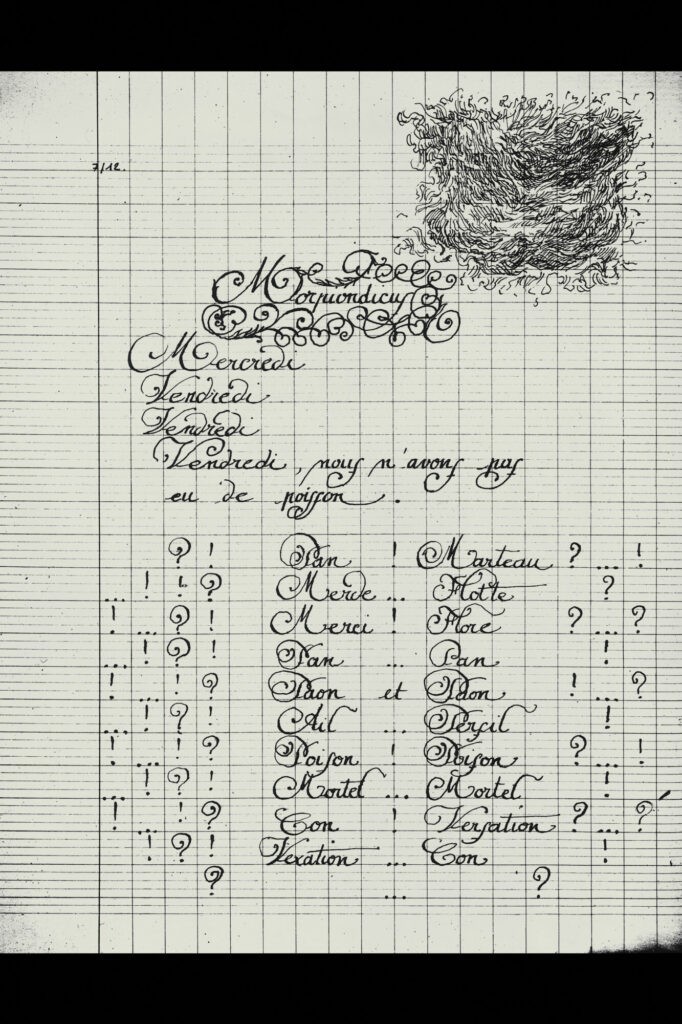 7/12.
Mercredi
Vendredi
Vendredi
Vendredi, nous n'avons pas
eu de poisson.
? ! Pan ! Marteau ? ... !
... ! ! ? Merde ... Flotte ?
! ... ? ! Merci ! Flore ? ... ?
... ! ? ! Pan ... Pan !
! ... ! ? Paon et Paon ! ... ?
... ! ? ! Ail ... Persil !
! ... ! ? Poison ! Poison ? ... !
... ! ? ! Mortel ... Mortel !
! ... ! ? Con ! Versation ? ... ?
... ! ? ! Vexation ... Con !
? ... ?